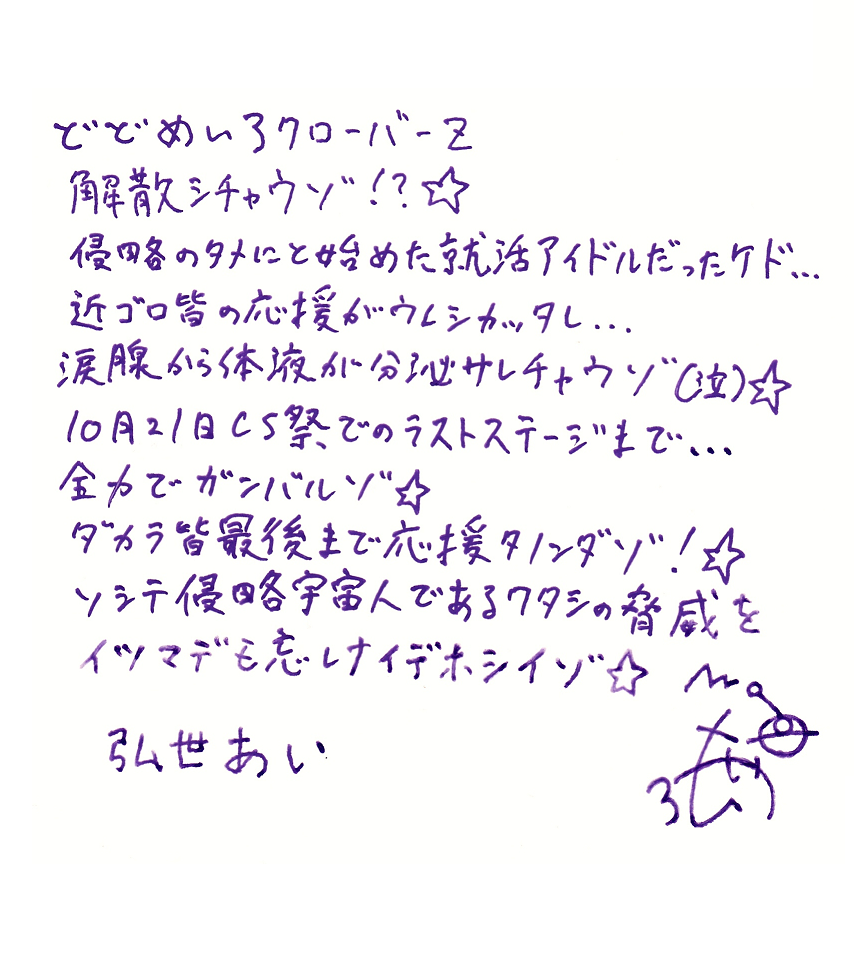 どどめいろクローバーZ
解散シチャウゾ!?☆
侵略のタメにと始めた就活アイドルだったケド...
近ゴロ皆の応援がウレシカッタし...
涙腺から体液が分泌サレチャウゾ(泣)☆
10月21日CS祭でのラストステージまで...
全力でガンバルゾ☆
ダカラ皆最後まで応援タノンダゾ!☆
ソシテ侵略宇宙人であるワタシの脅威を
イツマデモ忘レナイデホシイゾ☆
弘世あい